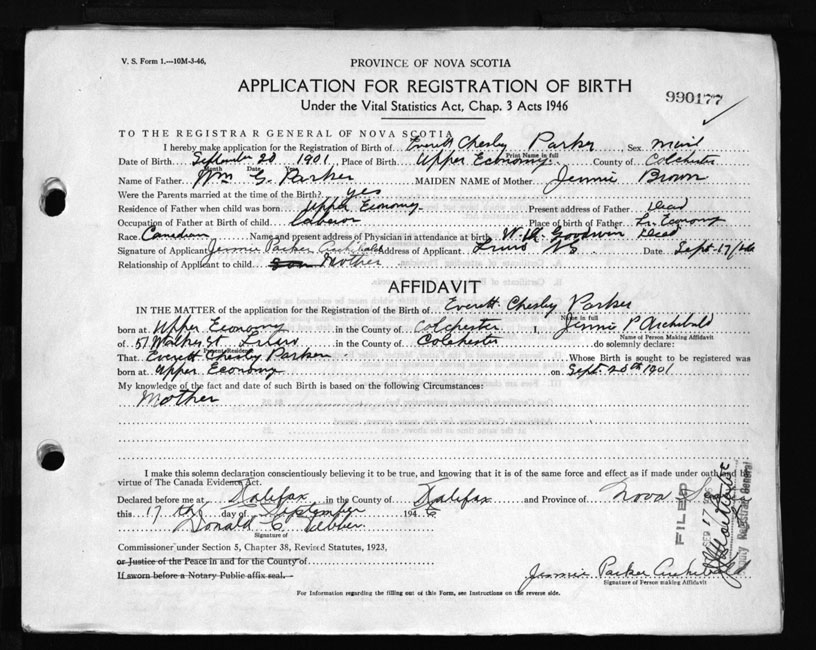 V. S. Form 1.—10M-3-46,
PROVINCE OF NOVA SCOTIA
APPLICATION FOR REGISTRATION OF BIRTH
Under the Vital Statistics Act, Chap. 3 Acts 1946
990177
TO THE REGISTRAR GENERAL OF NOVA SCOTIA
I hereby make application for the Registration of Birth of Everett Chesley Parker, Sex
Print Name in full
Date of Birth September 20 1901, Place of Birth Upper Economy County of Colchester
Month Date Year
Name of Father Wm G. Parker MAIDEN NAME of Mother Jennie Brown
Were the Parents married at the time of the Birth? yes
Residence of Father when child was born Upper Economy Present address of Father Dead
Occupation of Father at Birth of child Laborer Place of birth of Father Economy
Race Canadian Name and present address of Physician in attendance at birth Goodwin Dead
Signature of Applicant Jennie Parker Archibald Address of Applicant Truro N S Date Sept-17/46
Relationship of Applicant to child son Mother
AFFIDAVIT
IN THE MATTER of the application for the Registration of the Birth of Everett Chesley Parker
Name in full
born at Upper Economy in the County of Colchester I, Jennie P Archibald
Name of Person Making Affidavit
of 51 St Truro in the County of Colchester do solemnly declare:
Present Residence
That Everett Chesley Parker Whose Birth is sought to be registered was
born at Upper Economy on Sept. 20th 1901
My knowledge of the fact and date of such Birth is based on the following Circumstances:
Mother
I make this solemn declaration conscientiously believing it to be true, and knowing that it is of the same force and effect as if made under oath and by
virtue of The Canada Evidence Act.
Declared before me at Halifax in the County of Halifax and Province of Nova
this 17 th day of September 1946
Donald C Webber
Signature of
Commissioner under Section 5, Chapter 38, Revised Statutes, 1923,
or Justice of the Peace in and for the County of
If sworn before a Notary Public affix seal.
Jennie Parker Archibald
Signature of Person making Affidavit
FILED
SEP 17
Deputy Registrar General
For Information regarding the filling out of this Form, see Instructions on the reverse side.